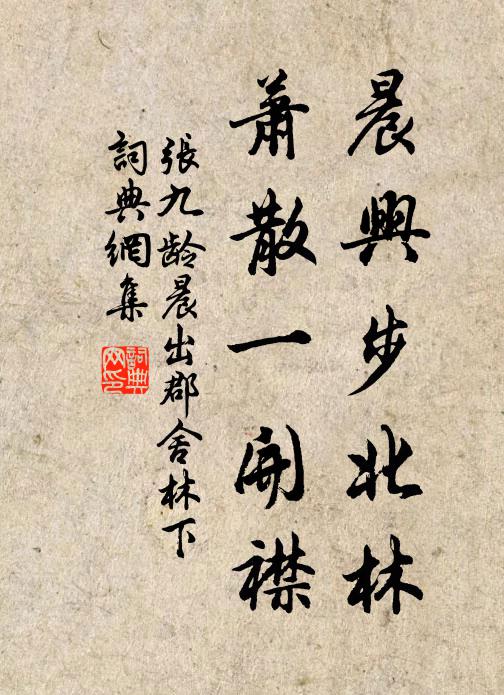 晨興步北林
蕭散一開襟
張九齡晨出郡舍林下
詞典網集
詞典
网印